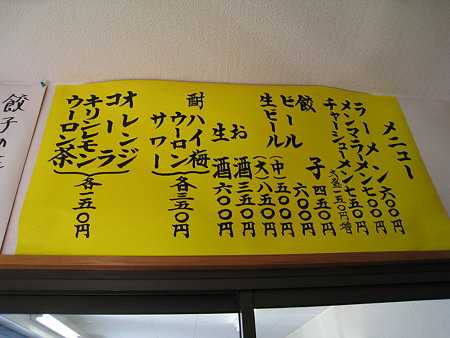 メニュー
ラーメン 六〇〇円
メンマラーメン 七〇〇円
チャーシューメン 七五〇円
大盛一五〇円増
餃子 四五〇円
ビール 六〇〇円
生ビール (中) 五〇〇円
(大) 八五〇円
お酒 三五〇円
生酒 六〇〇円
酎ハイ梅
ウーロン
サワー (各三五〇円)
オレンジ
コーラ
キリンレモン
ウーロン茶 (各一五〇円)
餃子の